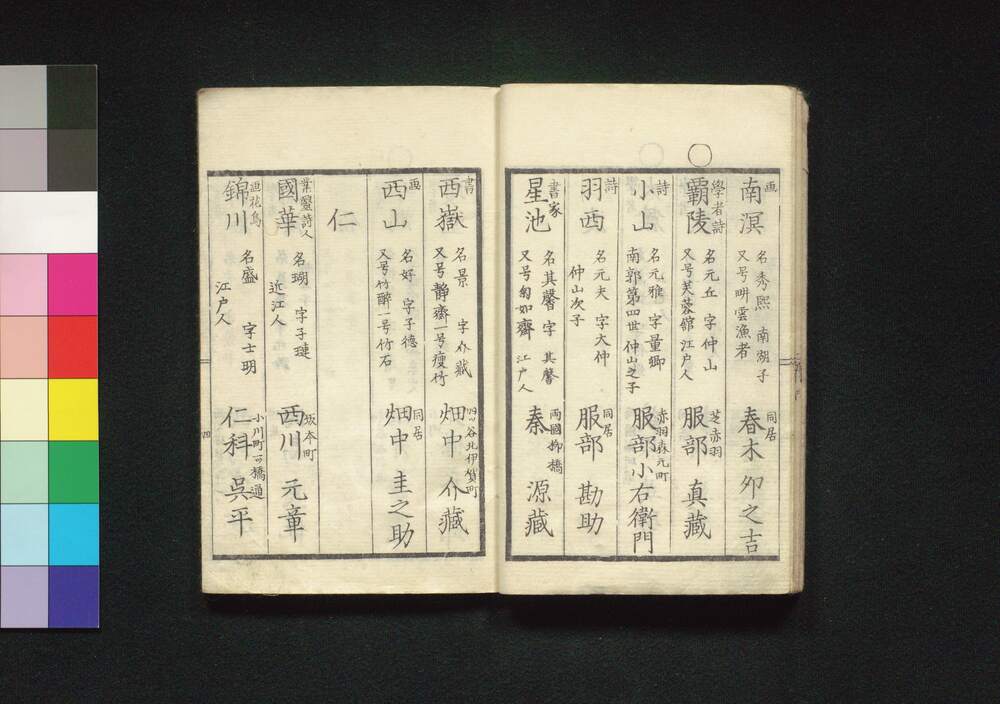 画
南溟
名秀熙 南湖子
又号畊雲漁者
同居
春木 夘之吉
學者詩
霸陵
名元丘 字仲山
又号芙蓉館 江戸人
芝赤羽
服部 真藏
詩
小山
名元雅 字量卿
南郭第四世仲山之子
赤羽森元町
服部小右衛門
詩
羽西
名元夫 字大仲
仲山次子
同居
服部 勘助
書家
星池
名其馨 字 其馨
又号匊如齋 江戸人
両國柳橋
秦 源藏
書
西嶽
名景 字介藏
又号靜齋一号瘦竹
四ツ谷北伊賀町
畑中 介藏
画
西山
名好 字子德
又号竹醉一号竹石
同居
畑中 圭之助
仁
業醫詩人
國華
名瑚 字子璉
近江人
坂本町
西川 元章
画花鳥
錦川
名盛 字士明
江戸人
小川町一ツ橋通
仁科 呉平
四